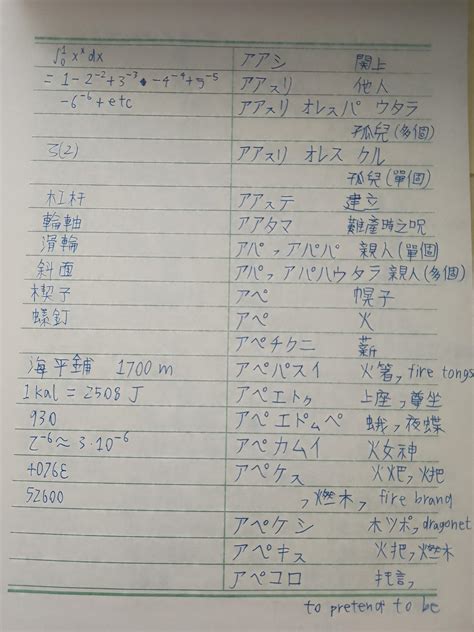 ∫₀¹ xˣ dx アアシ 関上
= 1 - 2⁻² + 3⁻³ - 4⁻⁴ + 5⁻⁵ アアスリ 他人
- 6⁻⁶ + etc アアスリ オレスパ ウタラ
孤兒(多個)
ζ(2) アアスリ オレス クル
孤兒(單個)
杠杆 アアステ 建立
輪軸 アアタマ 難產時之呪
滑輪 アパッアパパ 親人(單個)
斜面 アパッアパハウタラ 親人(多個)
楔子 アペ 幌子
螺釘 アペ 火
アペチクニ 薪
海平鋪 1700 m アペパスイ 火箸, fire tongs
1 kal = 2508 J アペエトゥ 上座,尊坐
930 アペエドムペ 蛾,夜蝶
2⁻⁶ ≈ 3·10⁻⁶ アペカムイ 火女神
アペケス 火炟,火把
52600 ,燃木, fire brand
アペケシ 木ツポ, dragonet
アペキス 火把,燃木
アペコロ 托言,
to pretend to be